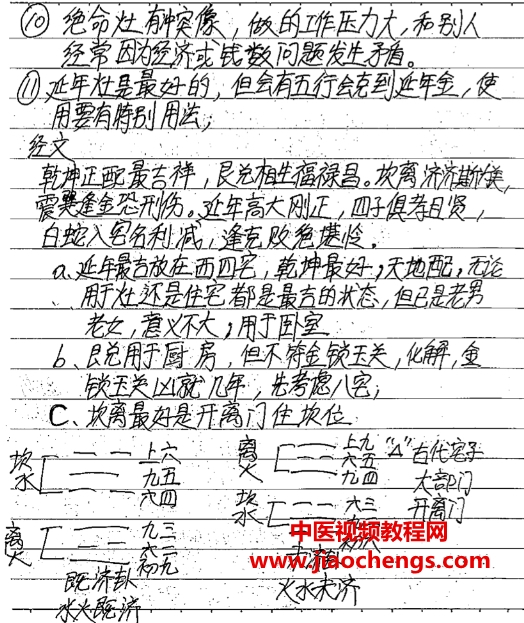 ⑩ 绝命灶有冲突像，做的工作压力大，和别人
经常因为经济或钱数问题发生矛盾。
⑪ 延年灶是最好的，但会有五行会克到延年金，使
用要有特别用法；
经文
乾坤正配最吉祥，艮兑相生福禄昌。坎离济济
震巽逢金恐刑伤。延年高大刚正，四子俱孝且贤，
白蛇入宅名利减，逢克败绝堪怜。
a. 延年最吉放在西四宅，乾坤最好；天地配，无论
用于灶还是住宅都是最吉的状态，但已是老男
老女，意义不大；用于卧室
b、艮兑用于厨房，但不符金锁玉关，化解，金
锁玉关凶就几年，先考虑八宅；
C、坎离最好是开离门住坎位
坎水 上六 九五 六四
离火 九三 六二 初九
既济卦
水火既济
离火 上九 六五 九四
坎水 六三
火水未济
"△" 古代宅子
大部门
开离门
中医视频教程网
www.jiaochengs.com